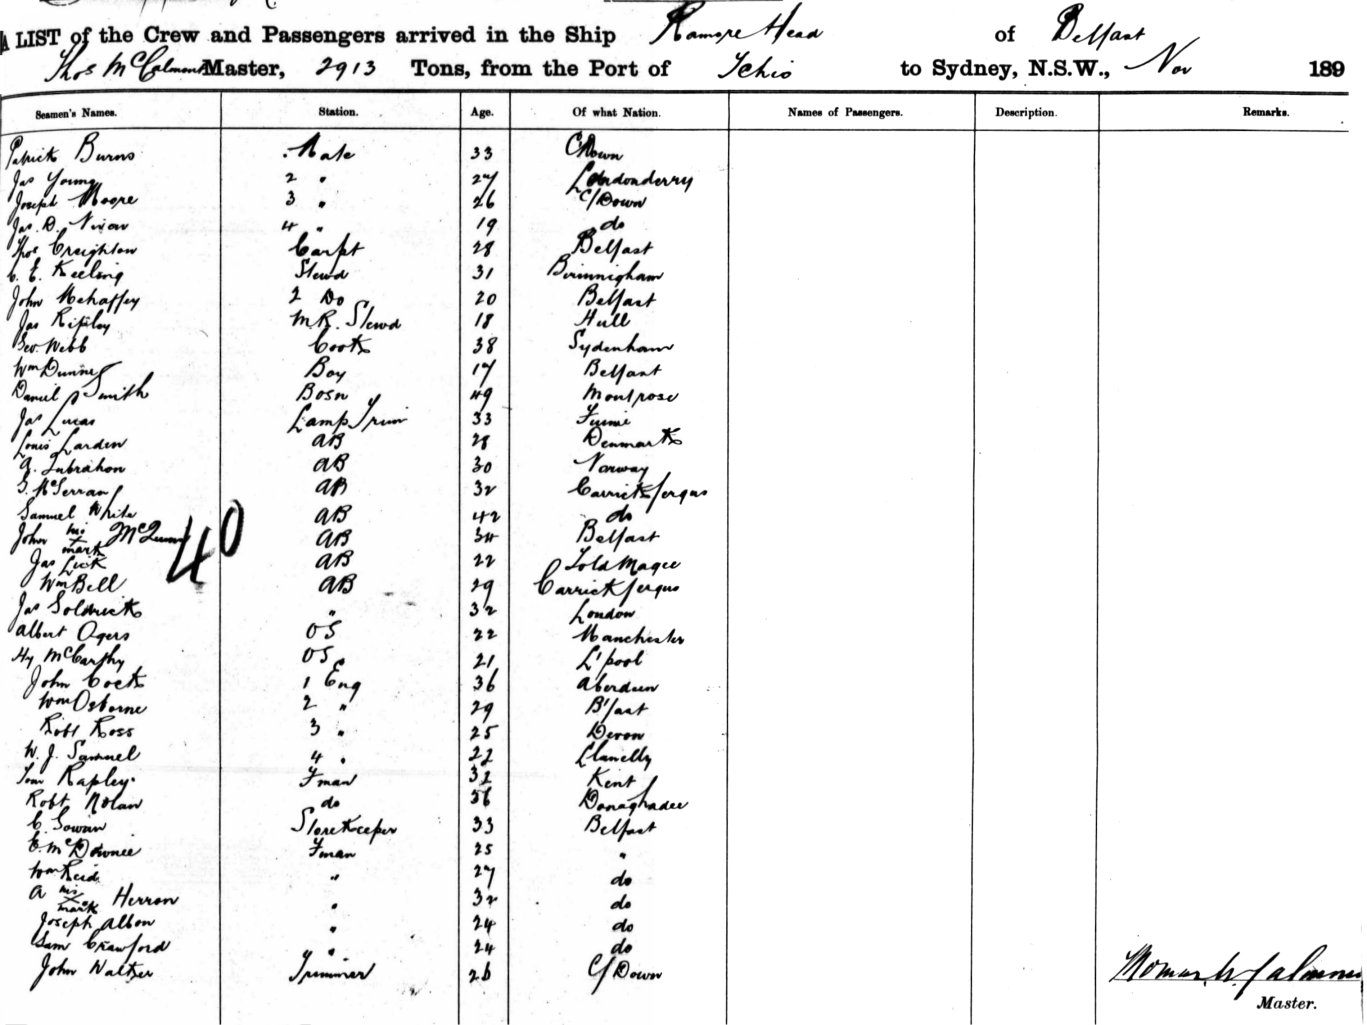 A LIST of the Crew and Passengers arrived in the Ship Ramore Head of Belfast
Thos McCalmont Master, 2913 Tons, from the Port of to Sydney, N.S.W., Nov 189
Seamen's Names. Station. Age. Of what Nation. Names of Passengers. Description. Remarks.
Patrick Burns Mate 33 C/Down
Jas Young 2 " 27 Londonderry
Joseph Moore 3 " 26 C/Down
Jas. D. Nixon 4 " 19 do
Thos Creighton Carpt 28 Belfast
C. E. Keeling Stewd 31 Birminigham
John Mehaffey 2 Do 20 Belfast
Jas Ripley M.R. Stewd 18 Hull
Geo. Webb Cook 38 Sydenham
Wm Dunne Boy 17 Belfast
Daniel Smith Bosn 49 Montrose
Jas Lucas Lamp Trim 33 Fiume
Louis Larden AB 28 Denmark
A. AB 30 Norway
AB 32 Carrickfergus
Samuel White AB 42 do
John his x mark McQuinn AB 34 Belfast
Jas Lick AB 22 Magee
Wm Bell AB 29 Carrickfergus
40
Jas Goldrick " 32 London
Albert Ogers OS 22 Manchester
Hy McCarthy OS 21 L'pool
John Cock 1 Eng 36 Aberdeen
Wm Osborne 2 " 29 B'fast
Robt Ross 3 " 25 Devon
W. J. Samuel 4 " 22 Llanelly
Tom Rapley Fman 32 Kent
Robt Nolan do 36 Donaghadee
C. Gowan Storekeeper 33 Belfast
E. McDownie Fman 25 "
Wm Reid " 27 do
A his x mark Herron " 32 do
Joseph Albon " 24 do
Sam Crawford " 24 do
John Walter Trimmer 26 C/Down
Thomas McCalmont
Master.